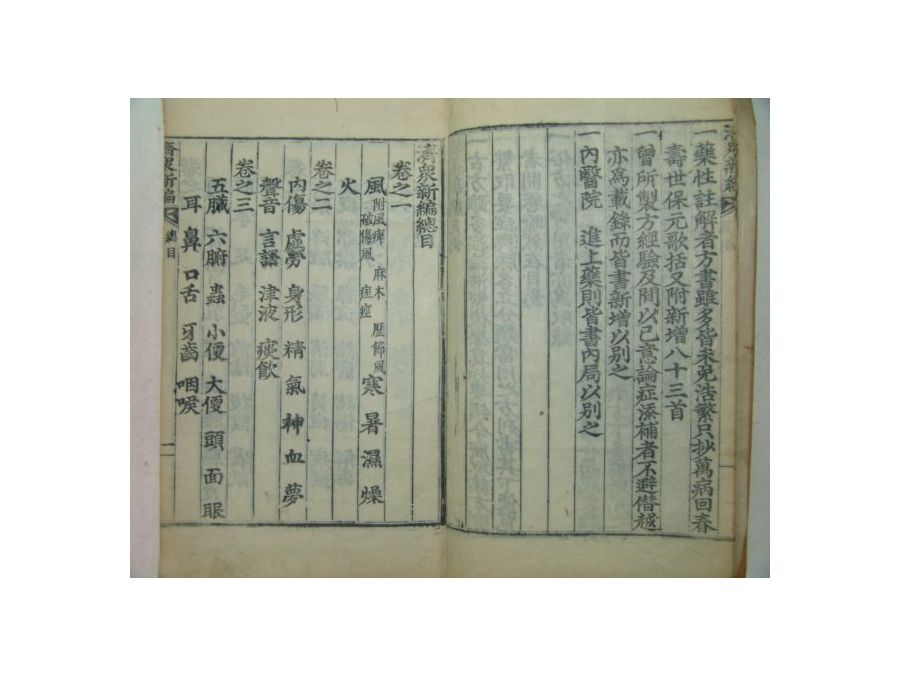 一藥性註解者方書雖多皆未免浩繁只抄萬病回春
壽世保元歌括又附新增八十三首
一曾所製方經驗及間以已意論症添補者不避僭越
亦爲載錄而皆書新增以別之
一內醫院 進上藥則皆書內局以別之
濟衆新編總目
卷之一
風 附風痺 麻木 歷節風 破傷風 痓痙 寒 暑 濕 燥
火
卷之二
內傷 虛勞 身形 精 氣 神 血 夢
聲音 言語 津液 痰飮
卷之三
五臟 六腑 蟲 小便 大便 頭 面 眼
耳 鼻 口舌 牙齒 咽喉
濟衆新編 總目 一